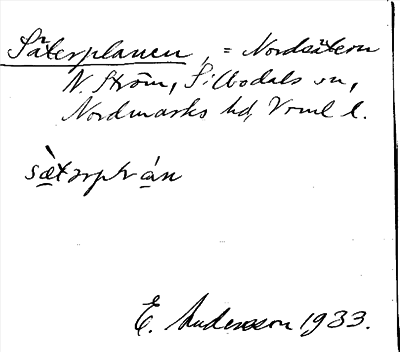 Säterplanen, = Nordsätern
N. Ström, Silbodals sn,
Nordmarks hd, Vrml l.
E. Andersson 1933.